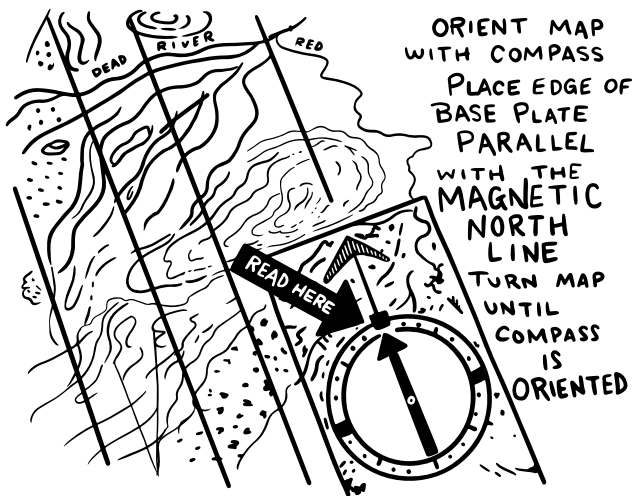 DEAD RIVER RED
ORIENT MAP
WITH COMPASS
PLACE EDGE OF
BASE PLATE
PARALLEL
WITH THE
MAGNETIC
NORTH
LINE
READ HERE
TURN MAP
UNTIL
COMPASS
IS
ORIENTED